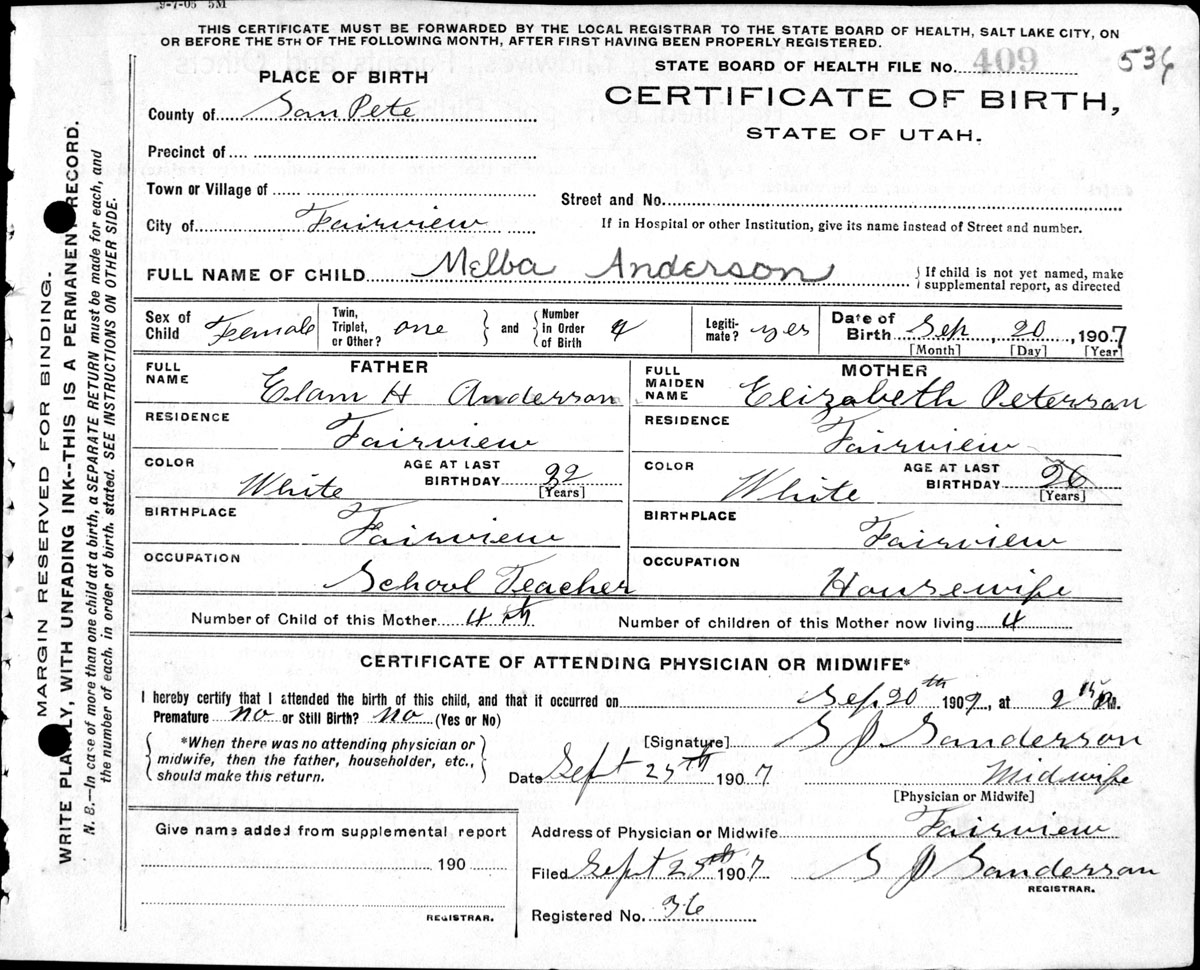 9-7-05 5M
THIS CERTIFICATE MUST BE FORWARDED BY THE LOCAL REGISTRAR TO THE STATE BOARD OF HEALTH, SALT LAKE CITY, ON
OR BEFORE THE 5TH OF THE FOLLOWING MONTH, AFTER FIRST HAVING BEEN PROPERLY REGISTERED.
PLACE OF BIRTH
STATE BOARD OF HEALTH FILE No. 409
536
County of San Pete
CERTIFICATE OF BIRTH,
STATE OF UTAH.
Precinct of
Town or Village of
Street and No.
City of Fairview
If in Hospital or other Institution, give its name instead of Street and number.
FULL NAME OF CHILD Melba Anderson
If child is not yet named, make
supplemental report, as directed
Sex of Child Female
Twin, Triplet, or Other? one
and
Number In Order of Birth 4
Legiti- mate? yes
Date of Birth Sep 20, 1907
[Month] [Day] [Year]
FATHER
FULL NAME Elam H Anderson
MOTHER
FULL MAIDEN NAME Elizabeth Peterson
RESIDENCE Fairview
RESIDENCE Fairview
COLOR White
AGE AT LAST BIRTHDAY 32
[Years]
COLOR White
AGE AT LAST BIRTHDAY 26
[Years]
BIRTHPLACE Fairview
BIRTHPLACE Fairview
OCCUPATION School Teacher
OCCUPATION Housewife
Number of Child of this Mother 4th
Number of children of this Mother now living 4
CERTIFICATE OF ATTENDING PHYSICIAN OR MIDWIFE*
I hereby certify that I attended the birth of this child, and that it occurred on Sep. 20th 1907, at 2 15 P.M.
Premature no or Still Birth? no (Yes or No)
*When there was no attending physician or
midwife, then the father, householder, etc.,
should make this return.
[Signature] S J Sanderson
Date Sept 25th 1907
Midwife
[Physician or Midwife]
Give name added from supplemental report
190
REGISTRAR.
Address of Physician or Midwife Fairview
Filed Sept 25th 1907 S J Sanderson
REGISTRAR.
Registered No. 36
MARGIN RESERVED FOR BINDING.
WRITE PLAINLY, WITH UNFADING INK--THIS IS A PERMANENT RECORD.
N. B.—In case of more than one child at a birth, a SEPARATE RETURN must be made for each, and
the number of each, in order of birth, stated. SEE INSTRUCTIONS ON OTHER SIDE.